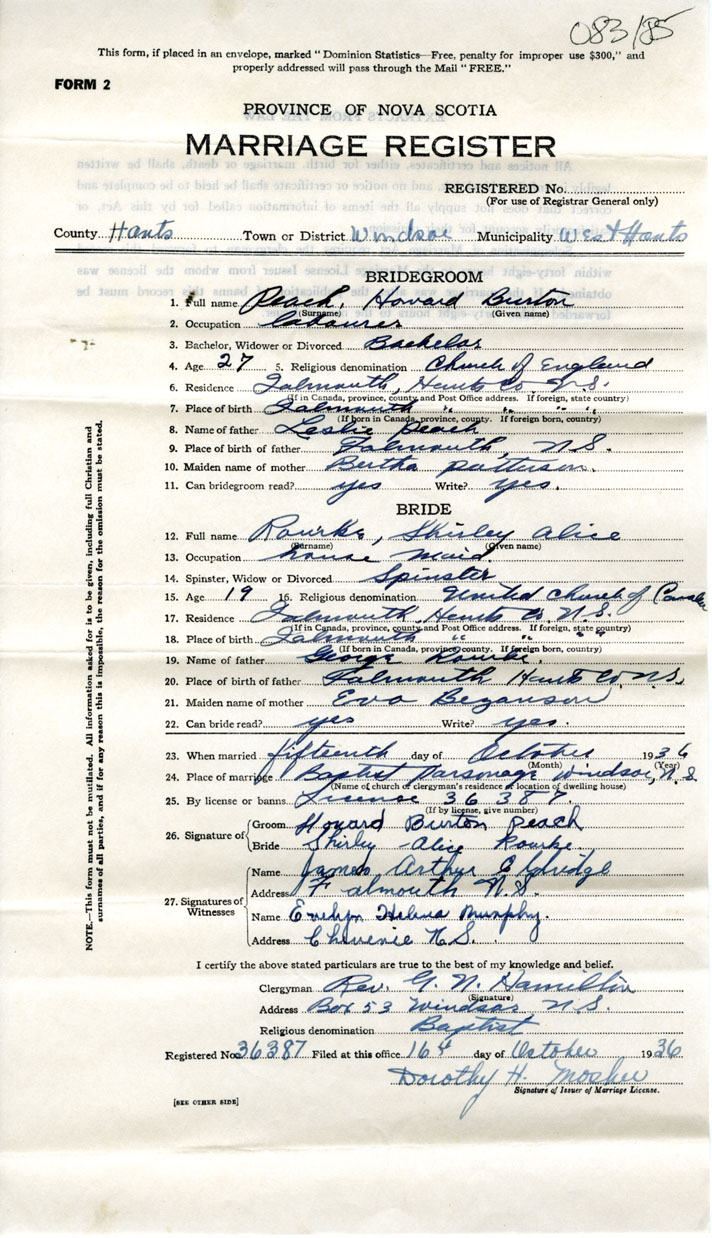 083/85
This form, if placed in an envelope, marked "Dominion Statistics—Free, penalty for improper use $300," and
properly addressed will pass through the Mail "FREE."
FORM 2
PROVINCE OF NOVA SCOTIA
MARRIAGE REGISTER
REGISTERED No.
(For use of Registrar General only)
County Hants Town or District Windsor Municipality West Hants
BRIDEGROOM
1. Full name Peach, Howard Burton
(Surname) (Given name)
2. Occupation labourer
3. Bachelor, Widower or Divorced Bachelor
4. Age 27 5. Religious denomination Church of England
6. Residence Falmouth, Hants Co. N.S.
(If in Canada, province, county and Post Office address. If foreign, state country)
7. Place of birth Falmouth " " " "
(If born in Canada, province, county. If foreign born, country)
8. Name of father Leslie Peach
9. Place of birth of father Falmouth, N.S.
10. Maiden name of mother Bertha Patterson.
11. Can bridegroom read? yes Write? yes.
BRIDE
12. Full name Rourke, Shirley Alice
(Surname) (Given name)
13. Occupation house maid
14. Spinster, Widow or Divorced Spinster
15. Age 19 16. Religious denomination United Church of Canada
17. Residence Falmouth, Hants Co N.S.
(If in Canada, province, county and Post Office address. If foreign, state country)
18. Place of birth Falmouth " " "
(If born in Canada, province, county. If foreign born, country)
19. Name of father George Rourke.
20. Place of birth of father Falmouth Hants Co N.S.
21. Maiden name of mother Eva Bezanson
22. Can bride read? yes Write? yes.
23. When married fifteenth day of October 1936
(Month) (Year)
24. Place of marriage Baptist Parsonage Windsor, N.S
(Name of church or clergyman's residence or location of dwelling house)
25. By license or banns License 36387.
(If by license, give number)
26. Signature of
Groom Howard Burton Peach
Bride Shirley Alice Rourke
27. Signatures of Witnesses
Name James Arthur Eldridge
Address Falmouth N.S.
Name Evelyn Helena Murphy.
Address Cheverie N.S.
I certify the above stated particulars are true to the best of my knowledge and belief.
Clergyman Rev. G. N. Hamilton
(Signature)
Address Box 53 Windsor N.S.
Religious denomination Baptist
Registered No. 36387 Filed at this office 16th day of October 1936
Dorothy H. Mosher
Signature of Issuer of Marriage License.
[SEE OTHER SIDE]
NOTE.—This form must not be mutilated. All information asked for is to be given, including full Christian and
surnames of all parties, and if for any reason this is impossible, the reason for the omission must be stated.